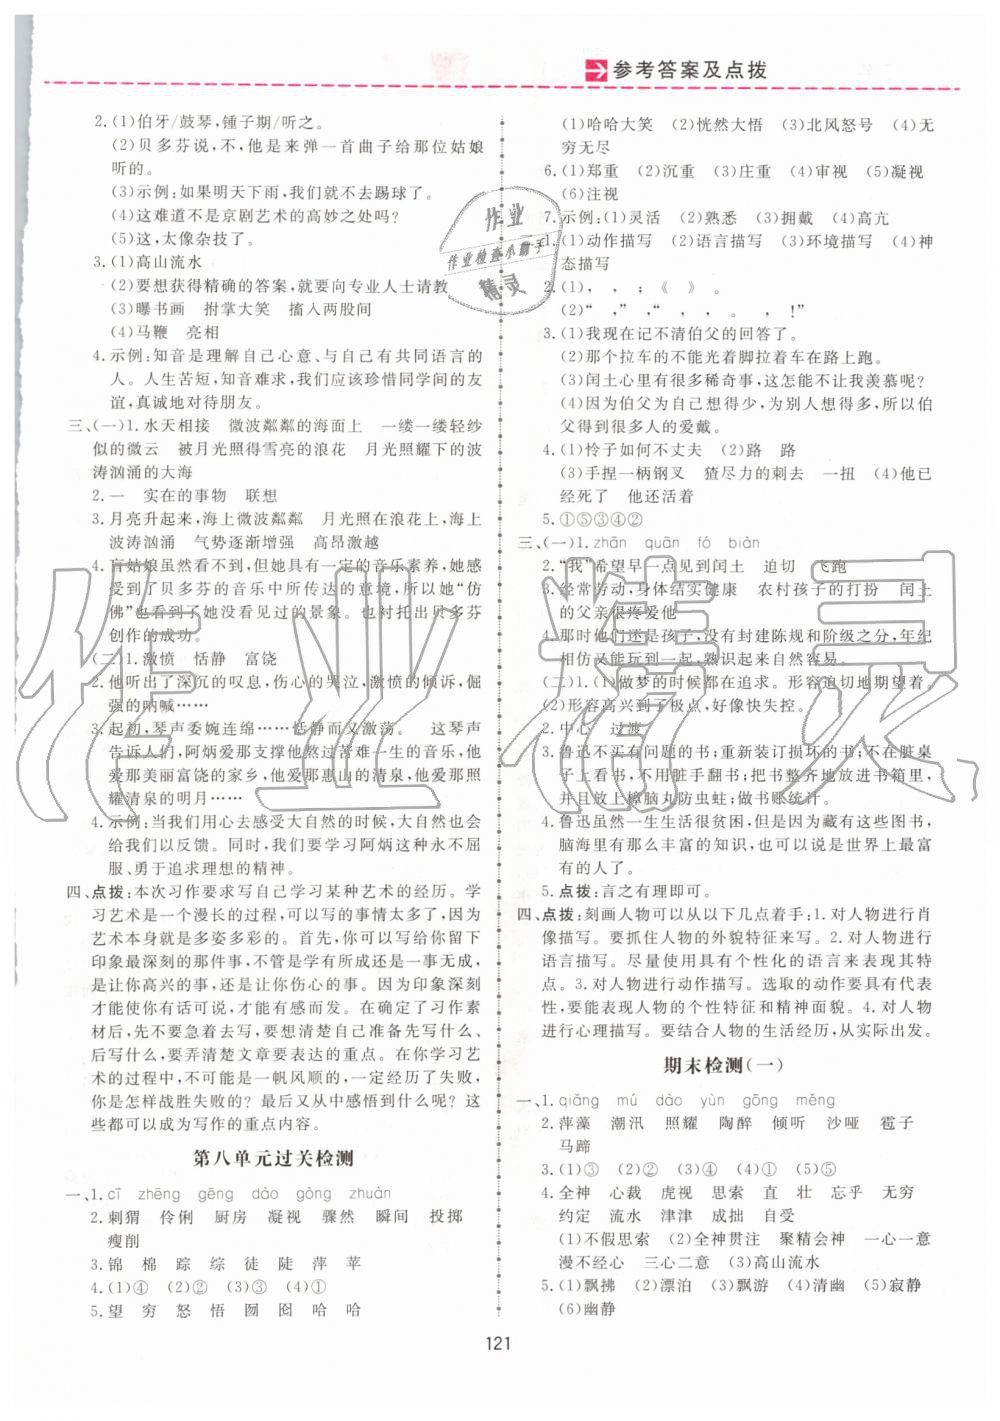 参考答案及点拨
2.(1)伯牙/鼓琴,锺子期/听之。
(2)贝多芬说,不,他是来弹一首曲子给那位姑娘
听的。
(3)示例:如果明天下雨,我们就不去踢球了。
(4)这难道不是京剧艺术的高妙之处吗?
(5)这,太像杂技了。
3.(1)高山流水
(2)要想获得精确的答案,就要向专业人士请教
(3)曝书画 拊掌大笑 搐入两股间
(4)马鞭 亮相
4.示例:知音是理解自己心意、与自己有共同语言的
人。人生苦短,知音难求,我们应该珍惜同学间的友
谊,真诚地对待朋友。
三、(一)1.水天相接 微波粼粼的海面上 一缕一缕轻纱
似的微云 被月光照得雪亮的浪花 月光照耀下的波
涛汹涌的大海
2.一 实在的事物 联想
3.月亮升起来,海上微波粼粼 月光照在浪花上,波
涛汹涌 气势逐渐增强 高昂激越
4.盲姑娘虽然看不到,但她具有一定的音乐素养,她感
受到了贝多芬的音乐中所传达的意境,所以她“仿
佛”也看到了她没看见过的景象。也衬托出贝多芬
创作的成功。
(二)1.激愤 恬静 富饶
2.他听出了深沉的叹息,伤心的哭泣,激愤的倾诉,倔
强的呐喊……
3.起初,琴声委婉连绵……恬静而又激荡。 这琴声
告诉人们,阿炳爱那支撑他熬过苦难一生的音乐,他
爱那美丽富饶的家乡,他爱那惠山的清泉,他爱那照
耀清泉的明月……
4.示例:当我们用心去感受大自然的时候,大自然也会
给我们以反馈。同时,我们要学习阿炳这种永不屈
服、勇于追求理想的精神。
四、点拨:本次习作要求写自己学习某种艺术的经历。学
习艺术是一个漫长的过程,可以写的事情太多了,因为
艺术本身就是多姿多彩的。首先,你可以写给你留下
印象最深刻的那件事,不管是学习前还是学习过程中,
是让你高兴的事,还是让你伤心的事。因为印象深刻
才能使你有话可说,才能有感而发。在确定了习作素
材后,先不要急着去写,要想清楚自己准备先写什么、
后写什么,要弄清楚文章要表达的重点。在你学习艺
术的过程中,不可能是一帆风顺的,一定经历了失败,
你是怎样战胜失败的?最后又从中感悟到什么?这
些都可以成为写作的重点内容。
第八单元过关检测
一、1.cī zhēng gēng dào gòng zhuàn
2.刺猬 伶俐 厨房 凝视 骤然 瞬间 投掷
瘦削
3.锦 棉 踪 综 徒 陡 萍 苹
4.(1)④ (2)② (3)③ (4)①
5.望 穷 怒 悟 囫 囵 哈 哈
(1)哈哈大笑 (2)恍然大悟 (3)北风怒号 (4)无
穷无尽
6.(1)郑重 (2)沉重 (3)庄重 (4)审视 (5)凝视
(6)注视
7.示例:(1)灵活 (2)熟悉 (3)拥戴 (4)高亢
1.(1)动作描写 (2)语言描写 (3)环境描写 (4)神
态描写
2.(1), ,;《 》。
(2)“ ”,“ , , 。 ,!”
3.(1)我现在记不清伯父的回答了。
(2)那个拉车的不能光着脚拉着车在路上跑。
(3)闰土心里有很多稀奇事,这怎能不让我羡慕呢?
(4)因为伯父为自己想得少,为别人想得多,所以伯
父得到很多人的爱戴。
4.(1)怜子如何不丈夫 (2)路 路
(3)手捏一柄钢叉 猹尽力的刺去 一扭 (4)他已
经死了 他还活着
5.①⑤③④②
三、(一)1.zhān quān fó biàn
2.“我”希望早一点见到闰土 迫切 飞跑
3.经常劳动,身体结实健康 农村孩子的打扮 闰土
的父亲很疼爱他
4.那时他们还是孩子,没有封建陈规和阶级之分,年纪
相仿又能玩到一起,熟识起来自然容易。
(二)1.(1)做梦的时候都在追求。形容迫切地期望着。
(2)形容高兴到了极点,好像快失控。
2.中心 过渡
3.鲁迅不买有问题的书;重新装订损坏的书;不在脏桌
子上看书;不用脏手翻书;把书整齐地放进书箱里,
并且放上樟脑丸防虫蛀;做书账统计。
4.鲁迅虽然一生生活很贫困,但因为藏有这些图书,
脑海里有那么丰富的知识,也可以说是世界上最富
有的人了。
5.点拨:言之有理即可。
四、点拨:刻画人物可以从以下几点着手:1.对人物进行肖
像描写。要抓住人物的外貌特征来写。2.对人物进行
语言描写。尽量使用具有个性化的语言来体现其特
点。3.对人物进行动作描写。选取的动作要具有代表
性,要能表现人物的个性特征和精神面貌。4.对人物
进行心理描写。要结合人物的生活经历,从实际出发。
期末检测(一)
一、1.qiǎng mú dào yùn gōng měng
2.萍藻 潮汛 照耀 陶醉 倾听 沙哑 雹子
马蹄
3.(1)③ (2)② (3)① (4)⑤ (5)⑤
4.全神 心裁 虎视 思索 直 壮 忘乎 无穷
约定 流水 津津 成拙 自受
(1)不假思索 (2)全神贯注 聚精会神 一心一意
漫不经心 三心二意 (3)高山流水
5.(1)飘拂 (2)漂泊 (3)飘游 (4)清幽 (5)寂静
(6)幽静
121
作业
作业检查小助手
精灵
作业精灵